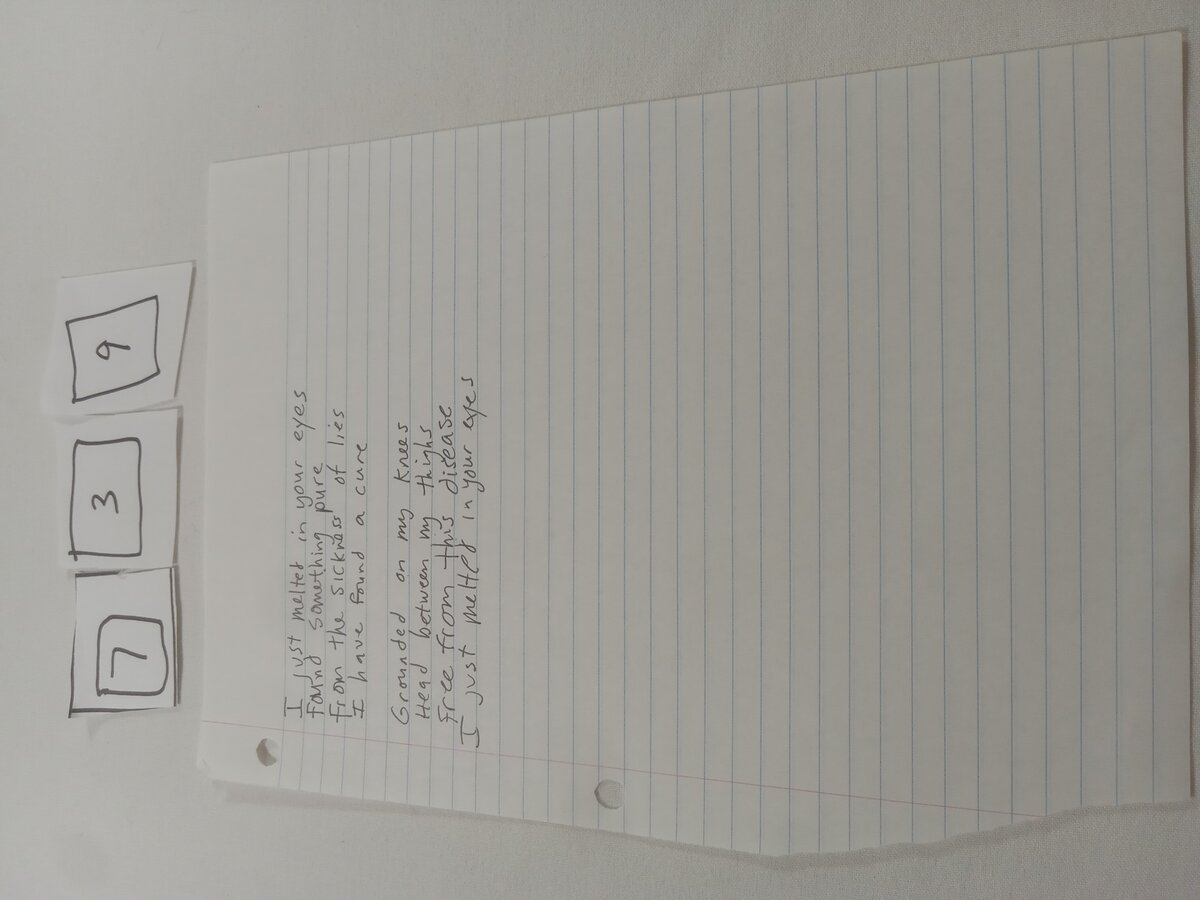 7 3 9
I just melted in your eyes
found something pure
from the sickness of lies
I have found a cure
Grounded on my knees
Head between my thighs
Free from this disease
I just melted in your eyes